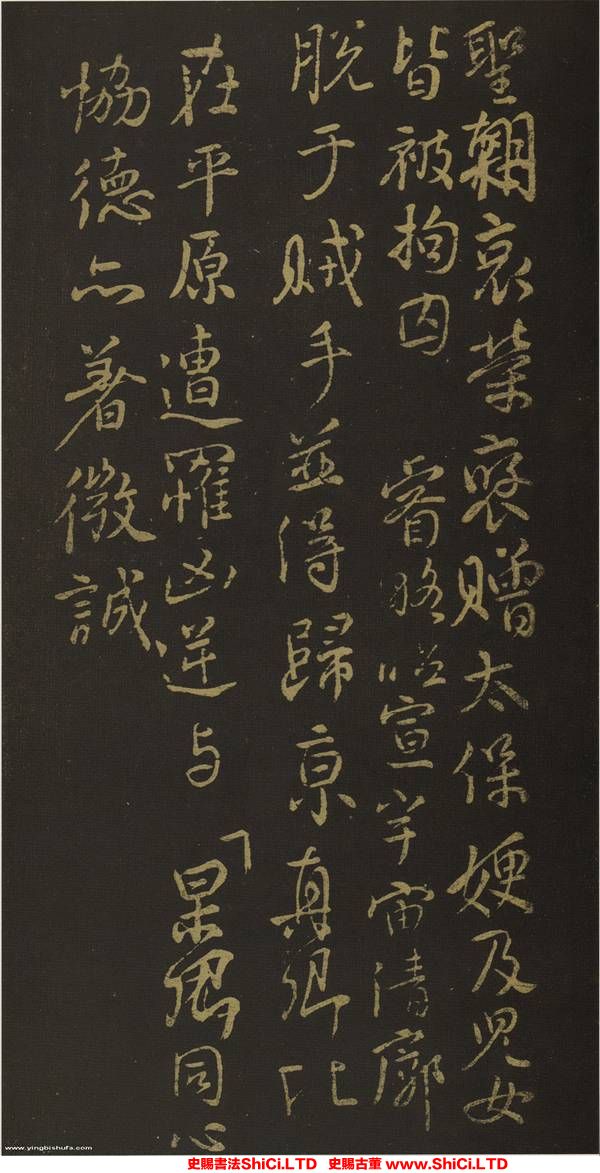 聖朝哀榮褒贈太保嫂及兒女
皆被拘囚 睿略昭宣宇宙清廓
脫于賊手並得歸京真卿比
在平原遭罹凶逆与杲卿同心
恊德亦著微誠
www.yingbishufa.com
史賜書法ShiCi.LTD 史賜古董 www.ShiCi.LTD